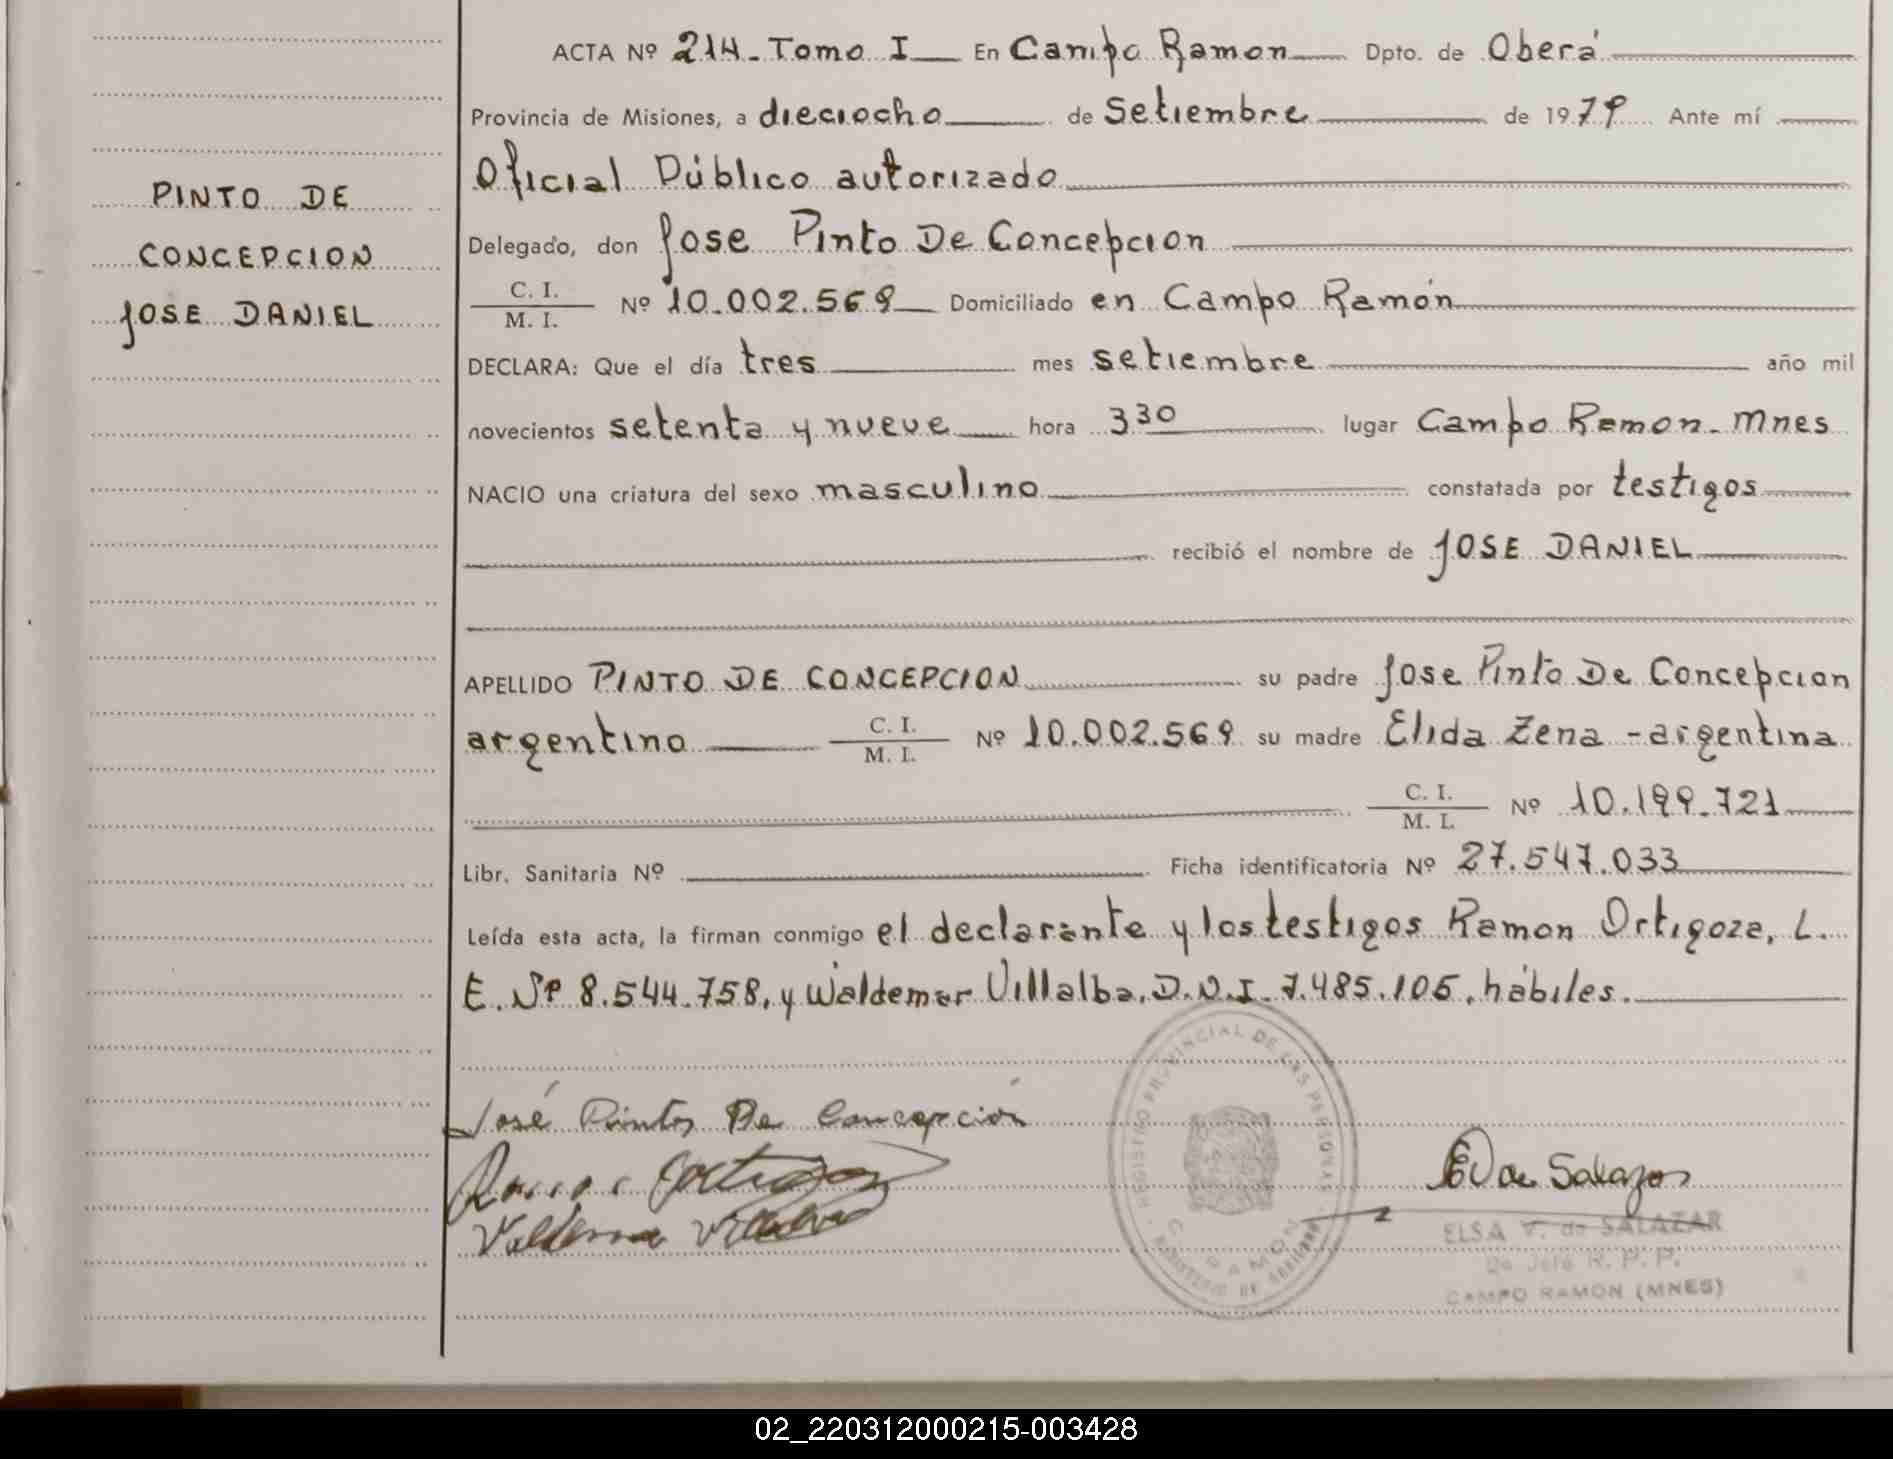 PINTO DE
CONCEPCION
JOSE DANIEL
ACTA Nº 214 - Tomo I En Campo Ramon Dpto. de Oberá
Provincia de Misiones, a dieciocho de Setiembre de 1979 Ante mí
Oficial Público autorizado
Delegado, don Jose Pinto De Concepcion
C. I.
M. I. Nº 10.002.569 Domiciliado en Campo Ramón
DECLARA: Que el día tres mes setiembre año mil
novecientos setenta y nueve hora 3 30 lugar Campo Ramon - Mnes
NACIO una criatura del sexo masculino constatada por testigos
recibió el nombre de JOSE DANIEL
APELLIDO PINTO DE CONCEPCION su padre Jose Pinto De Concepcion
argentino C. I.
M. I. Nº 10.002.569 su madre Elida Zena - argentina
C. I.
M. I. Nº 10.199.721
Libr. Sanitaria Nº Ficha identificatoria Nº 27.547.033
Leída esta acta, la firman conmigo el declarante y los testigos Ramon Ortigoza, L.
E. Nº 8.544.758, y Waldemar Villalba, D.N.I. 7.485.105, hábiles.
José Pinto De Concepción
REGISTRO PROVINCIAL DE LAS PERSONAS
E V de Salazar
ELSA V. de SALAZAR
R. P. P.
CAMPO RAMON (MNES)
02_220312000215-003428